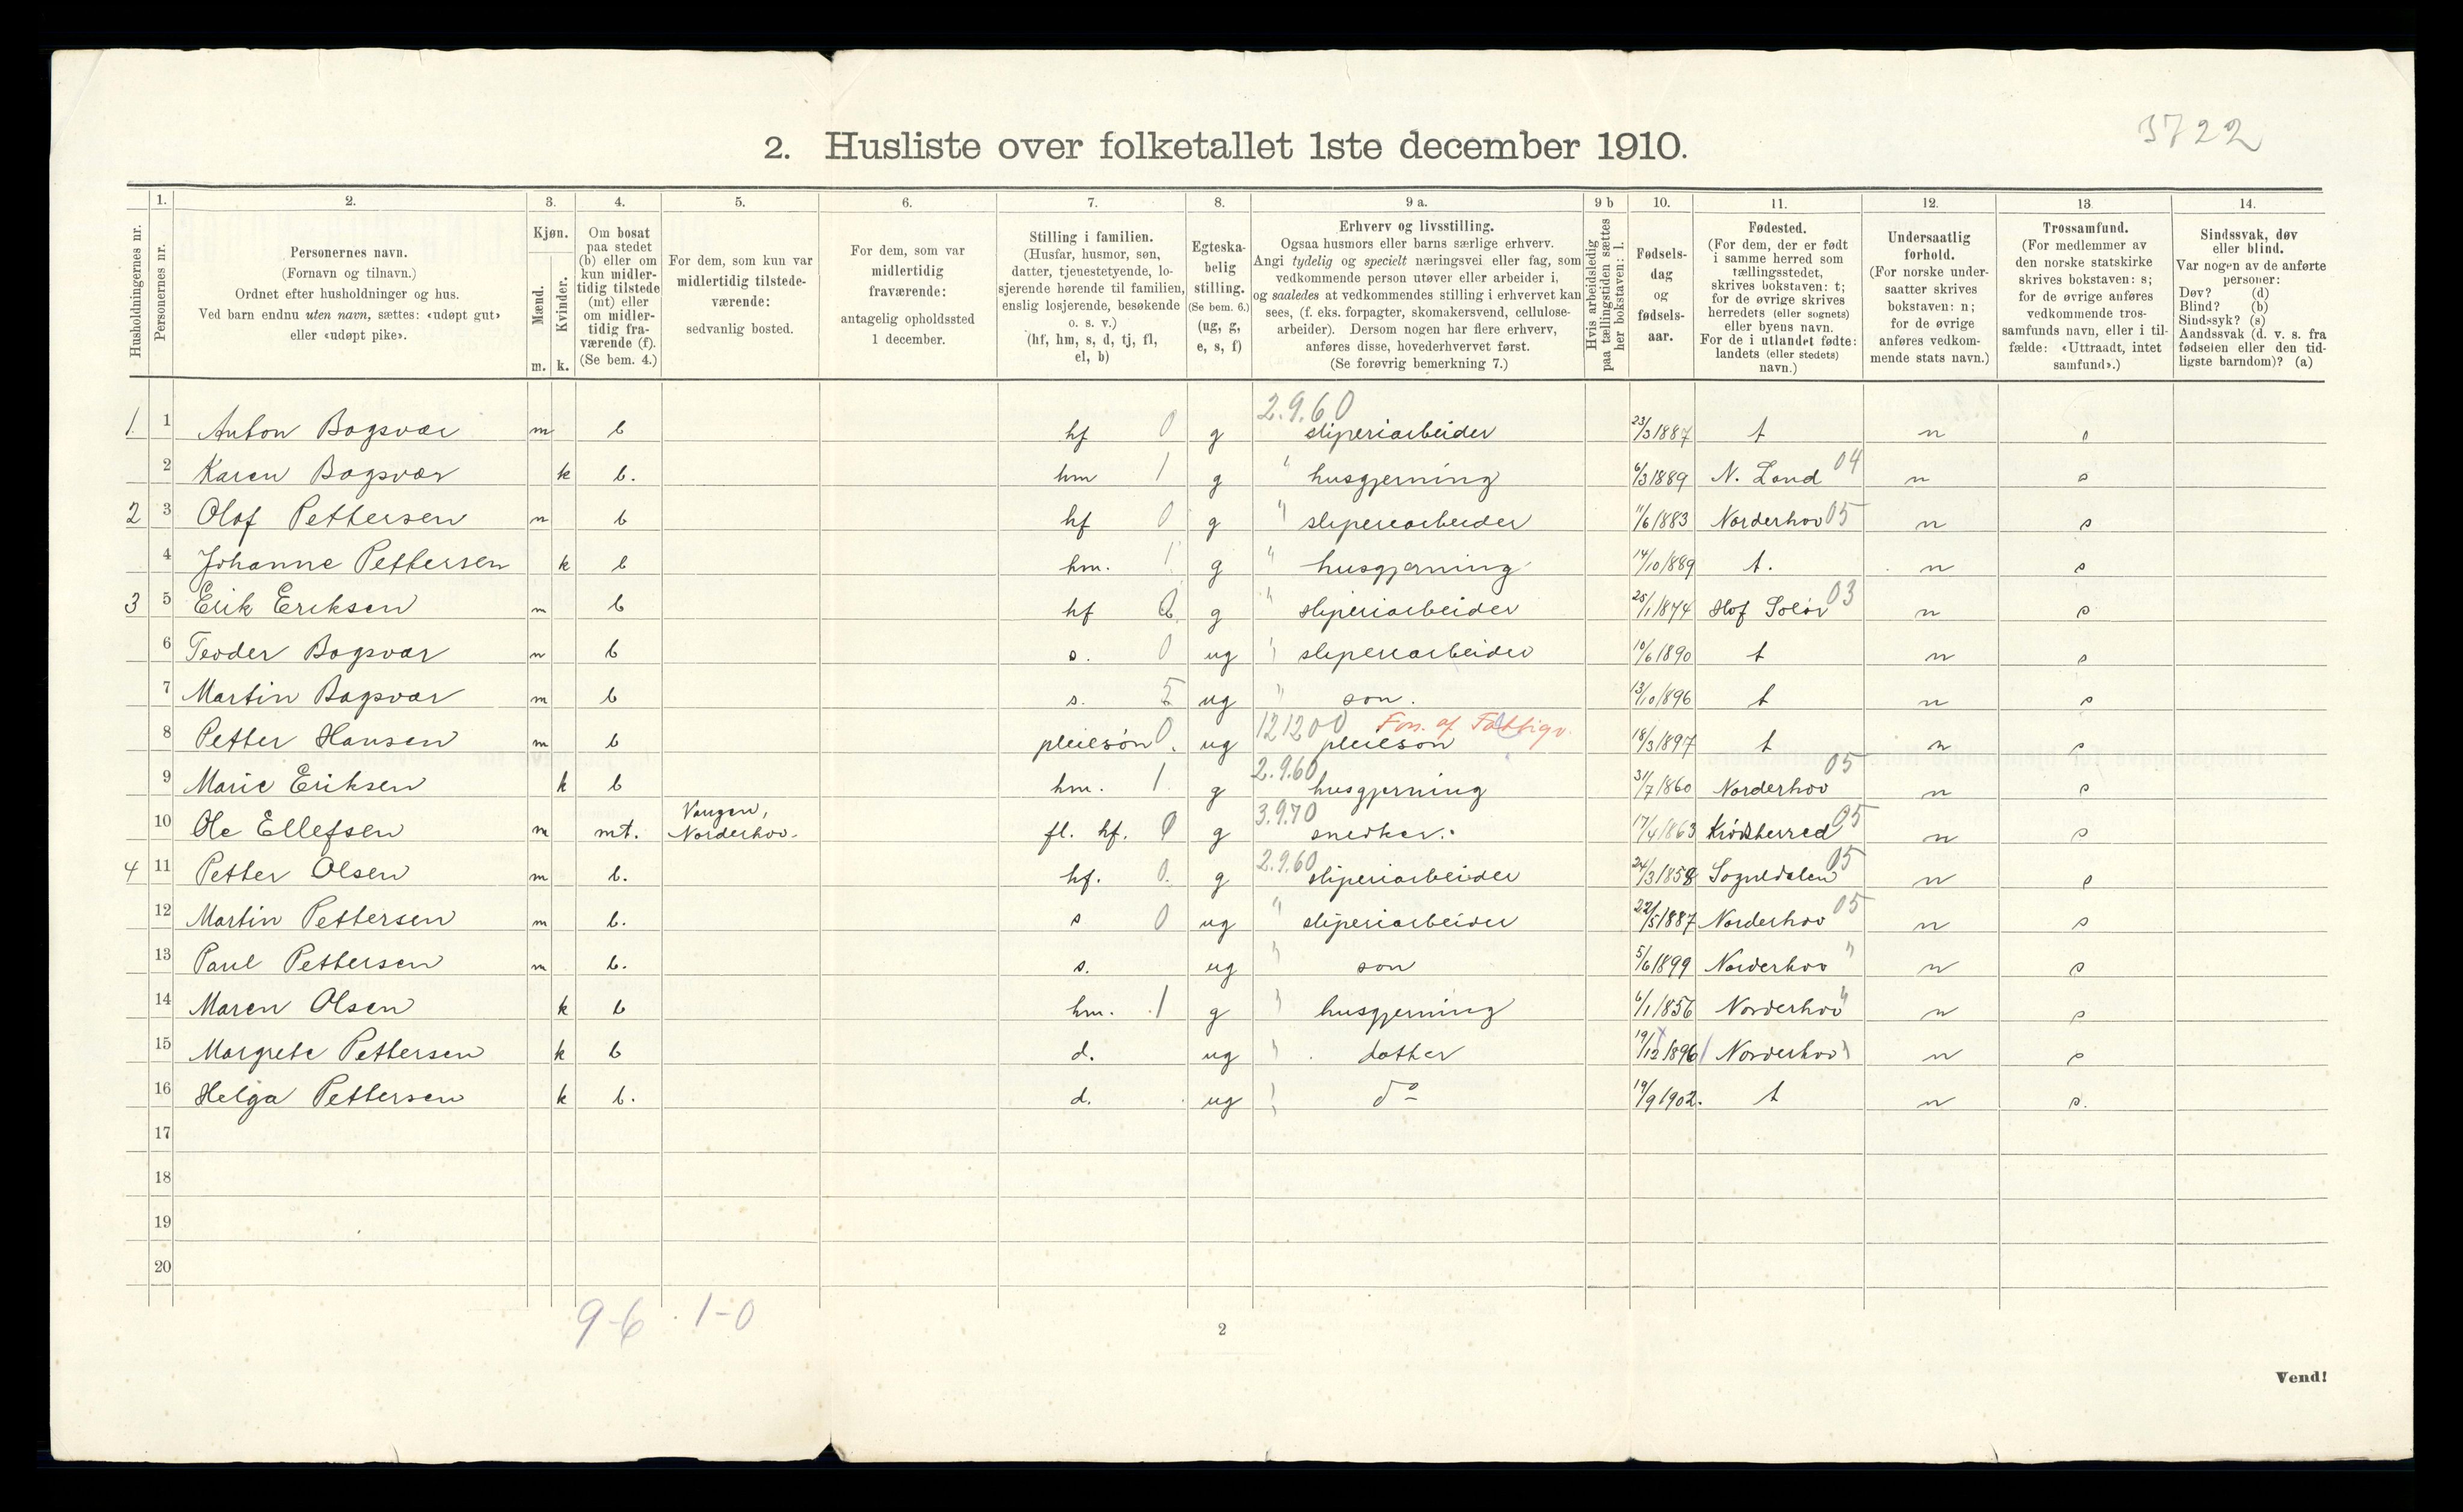 3722
2. Husliste over folketallet 1ste december 1910.
Husholdningernes nr.
1.
Personernes nr.
2.
Personernes navn.
(Fornavn og tilnavn.)
Ordnet efter husholdninger og hus.
Ved barn endnu uten navn, sættes: «udøpt gut»
eller «udøpt pike».
3.
Kjøn.
Mænd.
Kvinder.
m. k.
4.
Om bosat
paa stedet
(b) eller om
kun midler-
tidig tilstede
(mt) eller
om midler-
tidig fra-
værende (f).
(Se bem. 4.)
5.
For dem, som kun var
midlertidig tilstede-
værende:
sedvanlig bosted.
6.
For dem, som var
midlertidig
fraværende:
antagelig opholdssted
1 december.
7.
Stilling i familien.
(Husfar, husmor, søn,
datter, tjenestetyende, lo-
sjerende hørende til familien,
enslig losjerende, besøkende
o. s. v.)
(hf, hm, s, d, tj, fl,
el, b)
8.
Egteska-
belig
stilling.
(Se bem. 6.)
(ug, g,
e, s, f)
9 a.
Erhverv og livsstilling.
Ogsaa husmors eller barns særlige erhverv.
Angi tydelig og specielt næringsvei eller fag, som
vedkommende person utøver eller arbeider i,
og saaledes at vedkommendes stilling i erhvervet kan
sees, (f. eks. forpagter, skomakersvend, cellulose-
arbeider). Dersom nogen har flere erhverv,
anføres disse, hovederhvervet først.
(Se forøvrig bemerkning 7.)
9 b
Hvis arbeidsledig
paa tællingstiden sættes
her bokstaven: l.
10.
Fødsels-
dag
og
fødsels-
aar.
11.
Fødested.
(For dem, der er født
i samme herred som
tællingsstedet,
skrives bokstaven: t;
for de øvrige skrives
herredets (eller sognets)
eller byens navn.
For de i utlandet fødte:
landets (eller stedets)
navn.)
12.
Undersaatlig
forhold.
(For norske under-
saatter skrives
bokstaven: n;
for de øvrige
anføres vedkom-
mende stats navn.)
13.
Trossamfund.
(For medlemmer av
den norske statskirke
skrives bokstaven: s;
for de øvrige anføres
vedkommende tros-
samfunds navn, eller i til-
fælde: «Uttraadt, intet
samfund».)
14.
Sindssvak, døv
eller blind.
Var nogen av de anførte
personer:
Døv? (d)
Blind? (b)
Sindssyk? (s)
Aandssvak (d. v. s. fra
fødselen eller den tid-
ligste barndom)? (a)
1 1 Anton Bagsvær m b hf 0 g 2.9.60 sliperiarbeider 23/3 1887 t n s
2 Karen Bagsvær k b. hm 1 g " husgjerning 6/3 1889 N. Land 04 n s
2 3 Olaf Pettersen m b hf 0 g " sliperiarbeider 11/6 1883 Norderhov 05 n s
4 Johanne Pettersen k b hm. 1 g " husgjerning 14/10 1889 t. n s
3 5 Erik Eriksen m b hf 0 g " sliperiarbeider 25/1 1874 Hof Solør 03 n s
6 Teoder Bagsvær m b s. 0 ug " sliperiarbeider 10/6 1890 t n s
7 Martin Bagsvær m b s. 5 ug " søn. 13/10 1896 t n s
8 Petter Hansen m b pleiesøn 0. ug 121200 Fors. af Fattigv. pleiesøn 18/3 1897 t n s
9 Marie Eriksen k b hm. 1 g 2.9.60 husgjerning 31/7 1860 Norderhov 05 n s
10 Ole Ellefsen m mt. Vangen, Norderhov. fl. hf. 0 g 3.9.70 snedker. 17/4 1863 Krødsherred 05 n s
4 11 Petter Olsen m b. hf. 0. g 2.9.60 sliperiarbeider 24/3 1858 Sognedalen 05 n s
12 Martin Pettersen m b. s 0 ug " sliperiarbeider 22/5 1887 Norderhov 05 n s
13 Paul Pettersen m b. s. ug " søn 5/6 1899 Norderhov " n s
14 Maren Olsen k b hm. 1 g " husgjerning 6/1 1856 Norderhov " n s
15 Margrete Pettersen k b d. ug " datter 19/12 1896 Norderhov " n s
16 Helga Pettersen k b. d. ug " do 19/9 1902. t n s.
17
18
19
20
9-6 . 1-0
2
Vend!